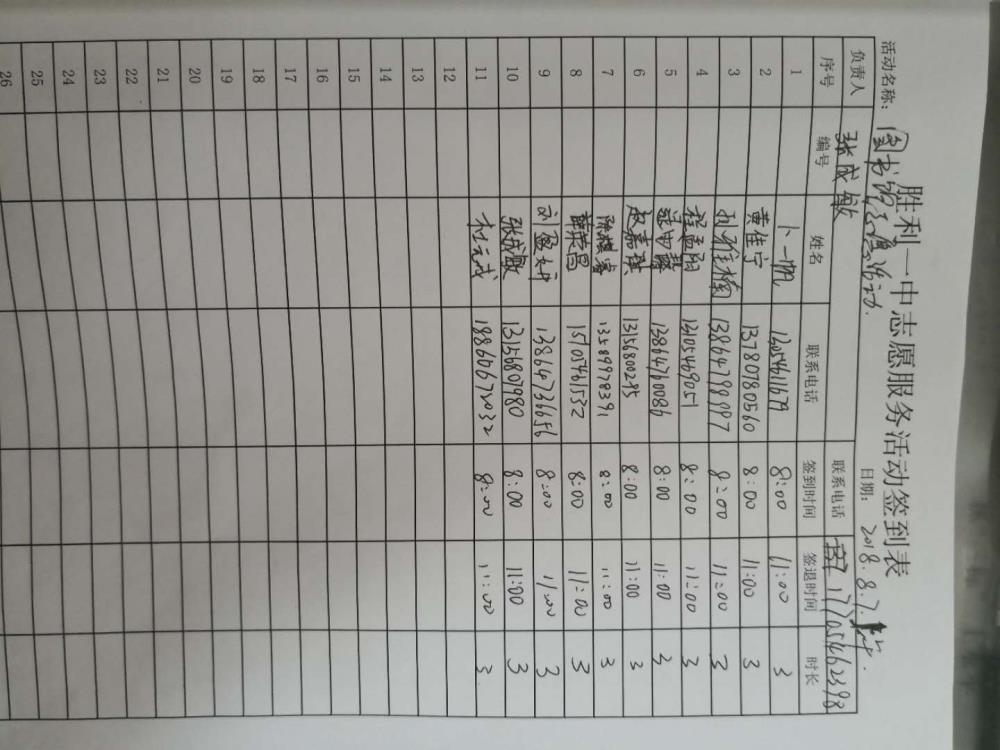 胜利一中志愿服务活动签到表
活动名称: 图书馆志愿活动. 日期: 2018.8.7.
负责人 张成敏 联系电话 17705462398
序号 编号 姓名 联系电话 签到时间 签退时间 时长
1 卜一帆 13054611679 8:00 11:00 3
2 黄佳宁 13780780560 8:00 11:00 3
3 孙雅楠 13864798997 8:00 11:00 3
4 程孟阳 13105469051 8:00 11:00 3
5 13864760086 8:00 11:00 3
6 赵嘉琪 13156800295 8:00 11:00 3
7 陈棋睿 13589978391 8:00 11:00 3
8 薛荣昌 15105461532 8:00 11:00 3
9 刘盈妤 13864736656 8:00 11:00 3
10 张成敏 13156807980 8:00 11:00 3
11 杜元成 18866672032 8:00 11:00 3
12
13
14
15
16
17
18
19
20
21
22
23
24
25
26